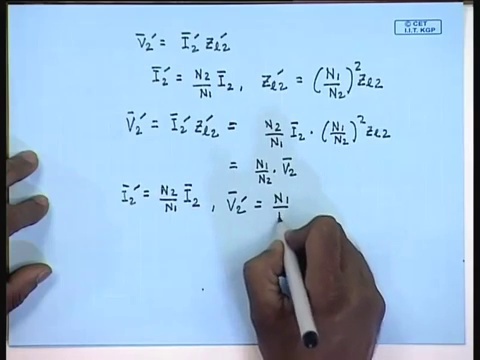 © CET
I.I.T. KGP
V̄₂′ = Ī₂′ Zl₂′
Ī₂′ = N₂/N₁ Ī₂ , Zl₂′ = (N₁/N₂)² Zl₂
V̄₂′ = Ī₂′ Zl₂′ = N₂/N₁ Ī₂ · (N₁/N₂)² Zl₂
= N₁/N₂ · V̄₂
Ī₂′ = N₂/N₁ Ī₂ , V̄₂′ = N₁/